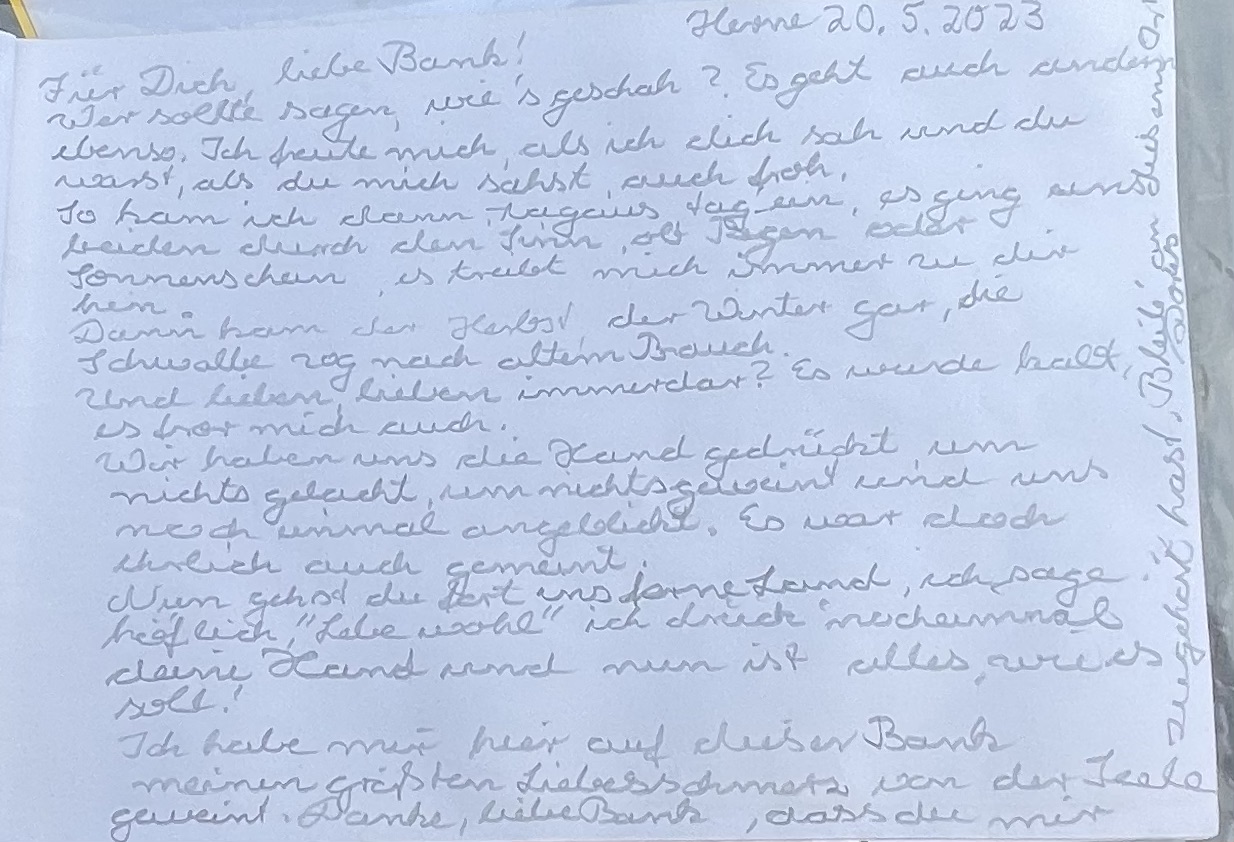 Herne 20.5.2023
Für Dich, liebe Bank!
Wer sollte sagen, wie's geschah? Es geht auch andern
ebenso. Ich freute mich, als ich dich sah und du
warst, als du mich sahst, auch froh.
So kam ich dann, tagaus tag ein, es ging uns
beiden durch den Sinn, ob Regen oder
Sonnenschein, es treibt mich immer zu dir
hin.
Dann kam der Herbst, der Winter gar, die
Schwalbe zog nach altem Brauch.
Und lieben, lieben immerdar? Es wurde kalt,
es fror mich auch.
Wir haben uns die Hand gedrückt, um
nichts gelacht, um nichts geweint und uns
noch einmal angeblickt. Es war doch
ehrlich auch gemeint.
Nun gehst du fort ins ferne Land, ich sage
höflich, "Lebe wohl" ich drück nocheinmal
deine Hand und nun ist alles, wie es
soll!
Ich habe mir hier auf dieser Bank
meinen größten Liebesschmerz von der Seele
geweint. Danke, liebe Bank, dass du mir
zugehört hast. Bleib' ein